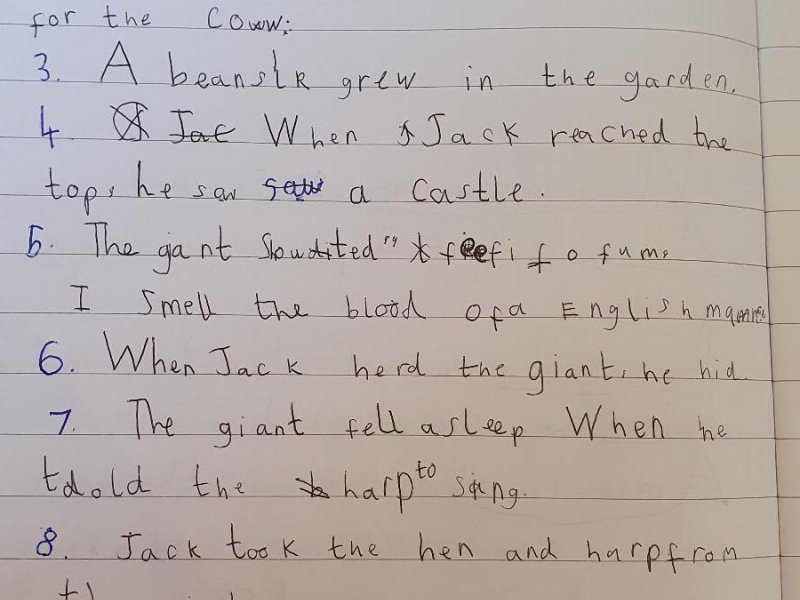 for the Coww.
3. A beanslk grew in the garden.
4. Jac When Jack reached the
top, he saw saw a Castle.
5. The gant Shoudted" feefi fo fum,
I Smell the blood of a English man
6. When Jack herd the giant, he hid
7. The giant fell asleep When he
told the harp to sing.
8. Jack took the hen and harp from